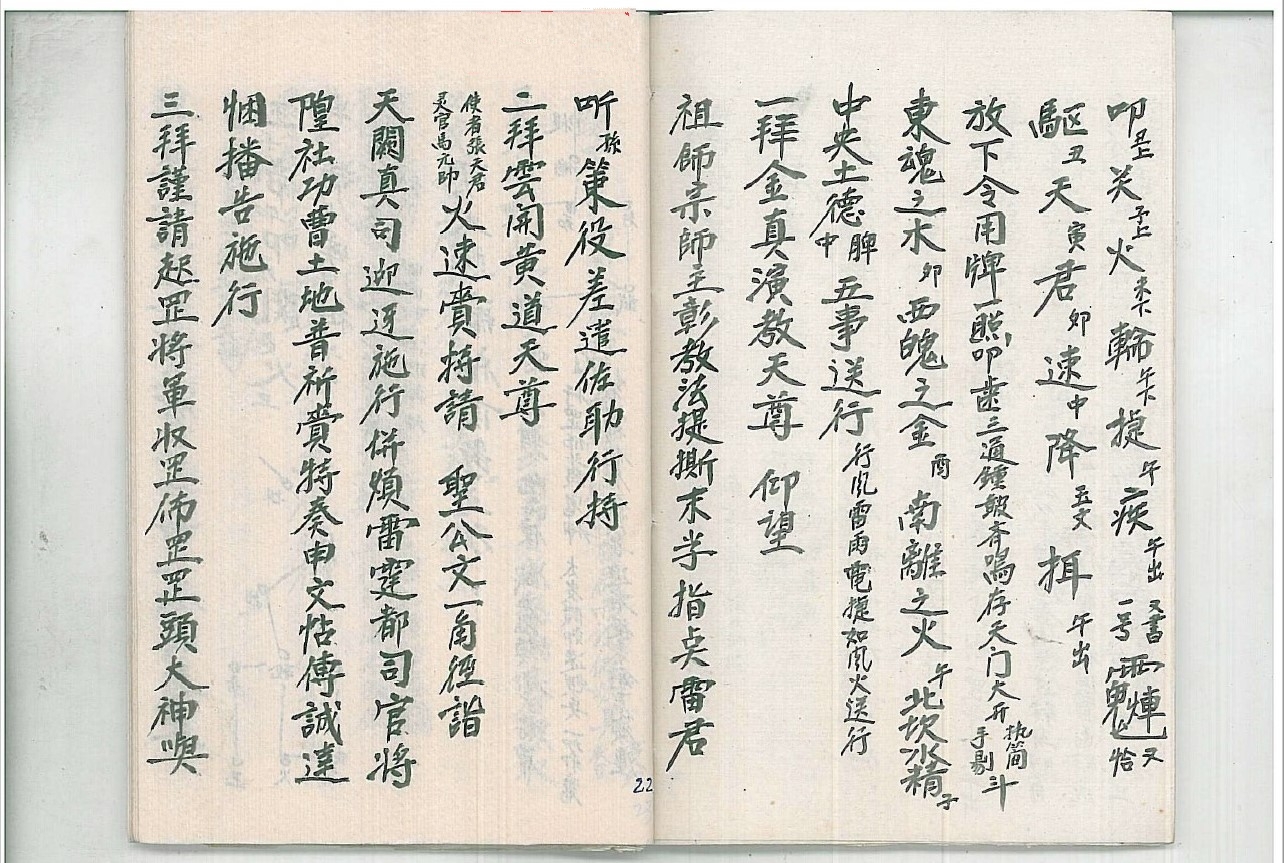 叩丑上 关子上 火未下 輪午下 捷午 疾午出 又書一号 又恰
驅丑 天寅 君卯 速中 降玉文 揖午出
放下令用牌一照叩歯三通鍾皷齐鳴存天门大开执简手剔斗
東魂之木卯 西魄之金酉 南離之火午 北坎水精子
中央土德中脾五事送行行風雷雨電捷如風火送行
一拜金真演教天尊 仰望
祖師宗師主彰教法提撕末学指点雷君
听孫策役差遣佐助行持
二拜雲開黄道天尊
使者張天君灵官馬元帅火速賫持請 聖公文一角徑詣
天闕真司迎迓施行併煩雷霆都司官将
隍社功曹土地普祈賫特奏申文帖傳誠達
悃播告施行
三拜謹請起罡将軍収罡佈罡罡頭大神喫
22